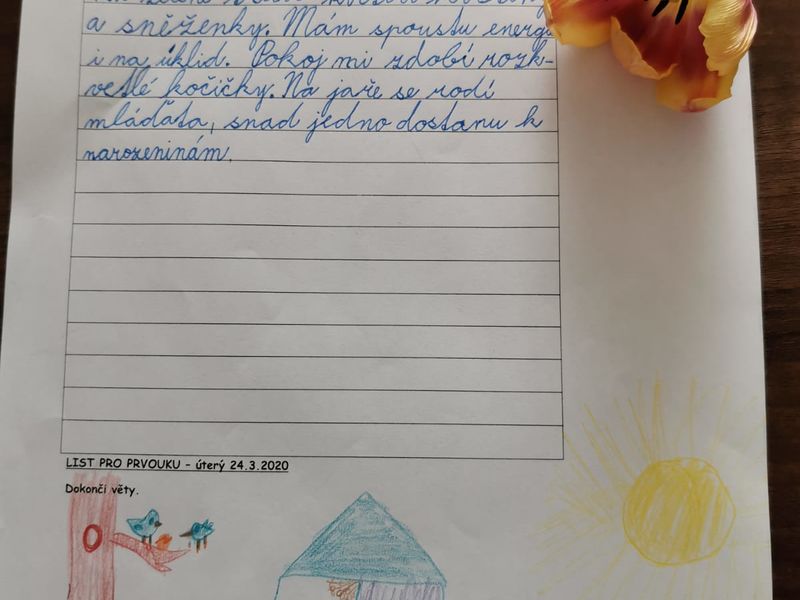 a sněženky. Mám spoustu energi
i na úklid. Pokoj mi zdobí rozk-
vetlé kočičky. Na jaře se rodí
mláďata, snad jedno dostanu k
narozeninám.
LIST PRO PRVOUKU - úterý 24.3.2020
Dokonči věty.